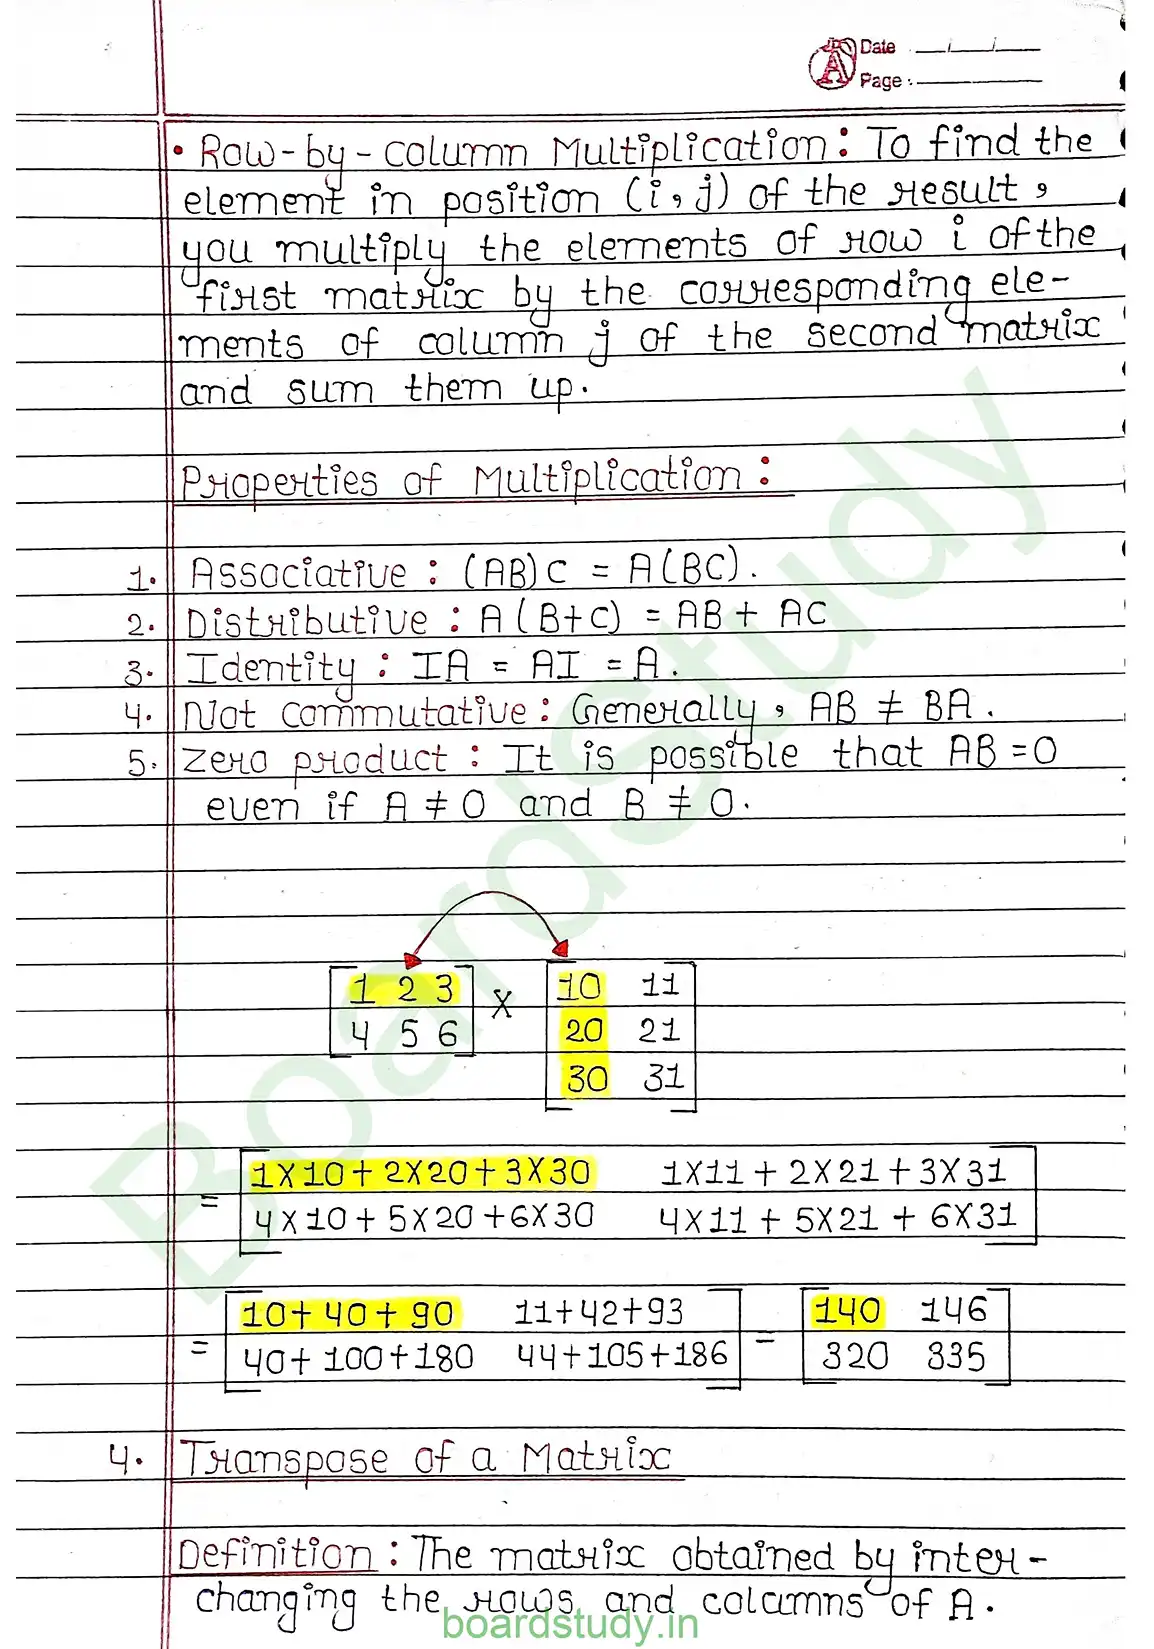 Date
Page :
• Row-by-column Multiplication: To find the
element in position (i, j) of the result,
you multiply the elements of row i of the
first matrix by the corresponding ele-
ments of column j of the second matrix
and sum them up.
Properties of Multiplication:
1. Associative: (AB)C = A(BC).
2. Distributive: A(B+C) = AB + AC
3. Identity: IA = AI = A.
4. Not commutative: Generally, AB ≠ BA.
5. Zero product: It is possible that AB = 0
even if A ≠ 0 and B ≠ 0.
[1 2 3] X [10 11]
[4 5 6] [20 21]
[30 31]
= [1X10+2X20+3X30 1X11+2X21+3X31]
[4X10+5X20+6X30 4X11+5X21+6X31]
= [10+40+90 11+42+93] = [140 146]
[40+100+180 44+105+186] [320 335]
4. Transpose of a Matrix
Definition: The matrix obtained by inter-
changing the rows and colamns of A.
BoardStudy
boardstudy.in